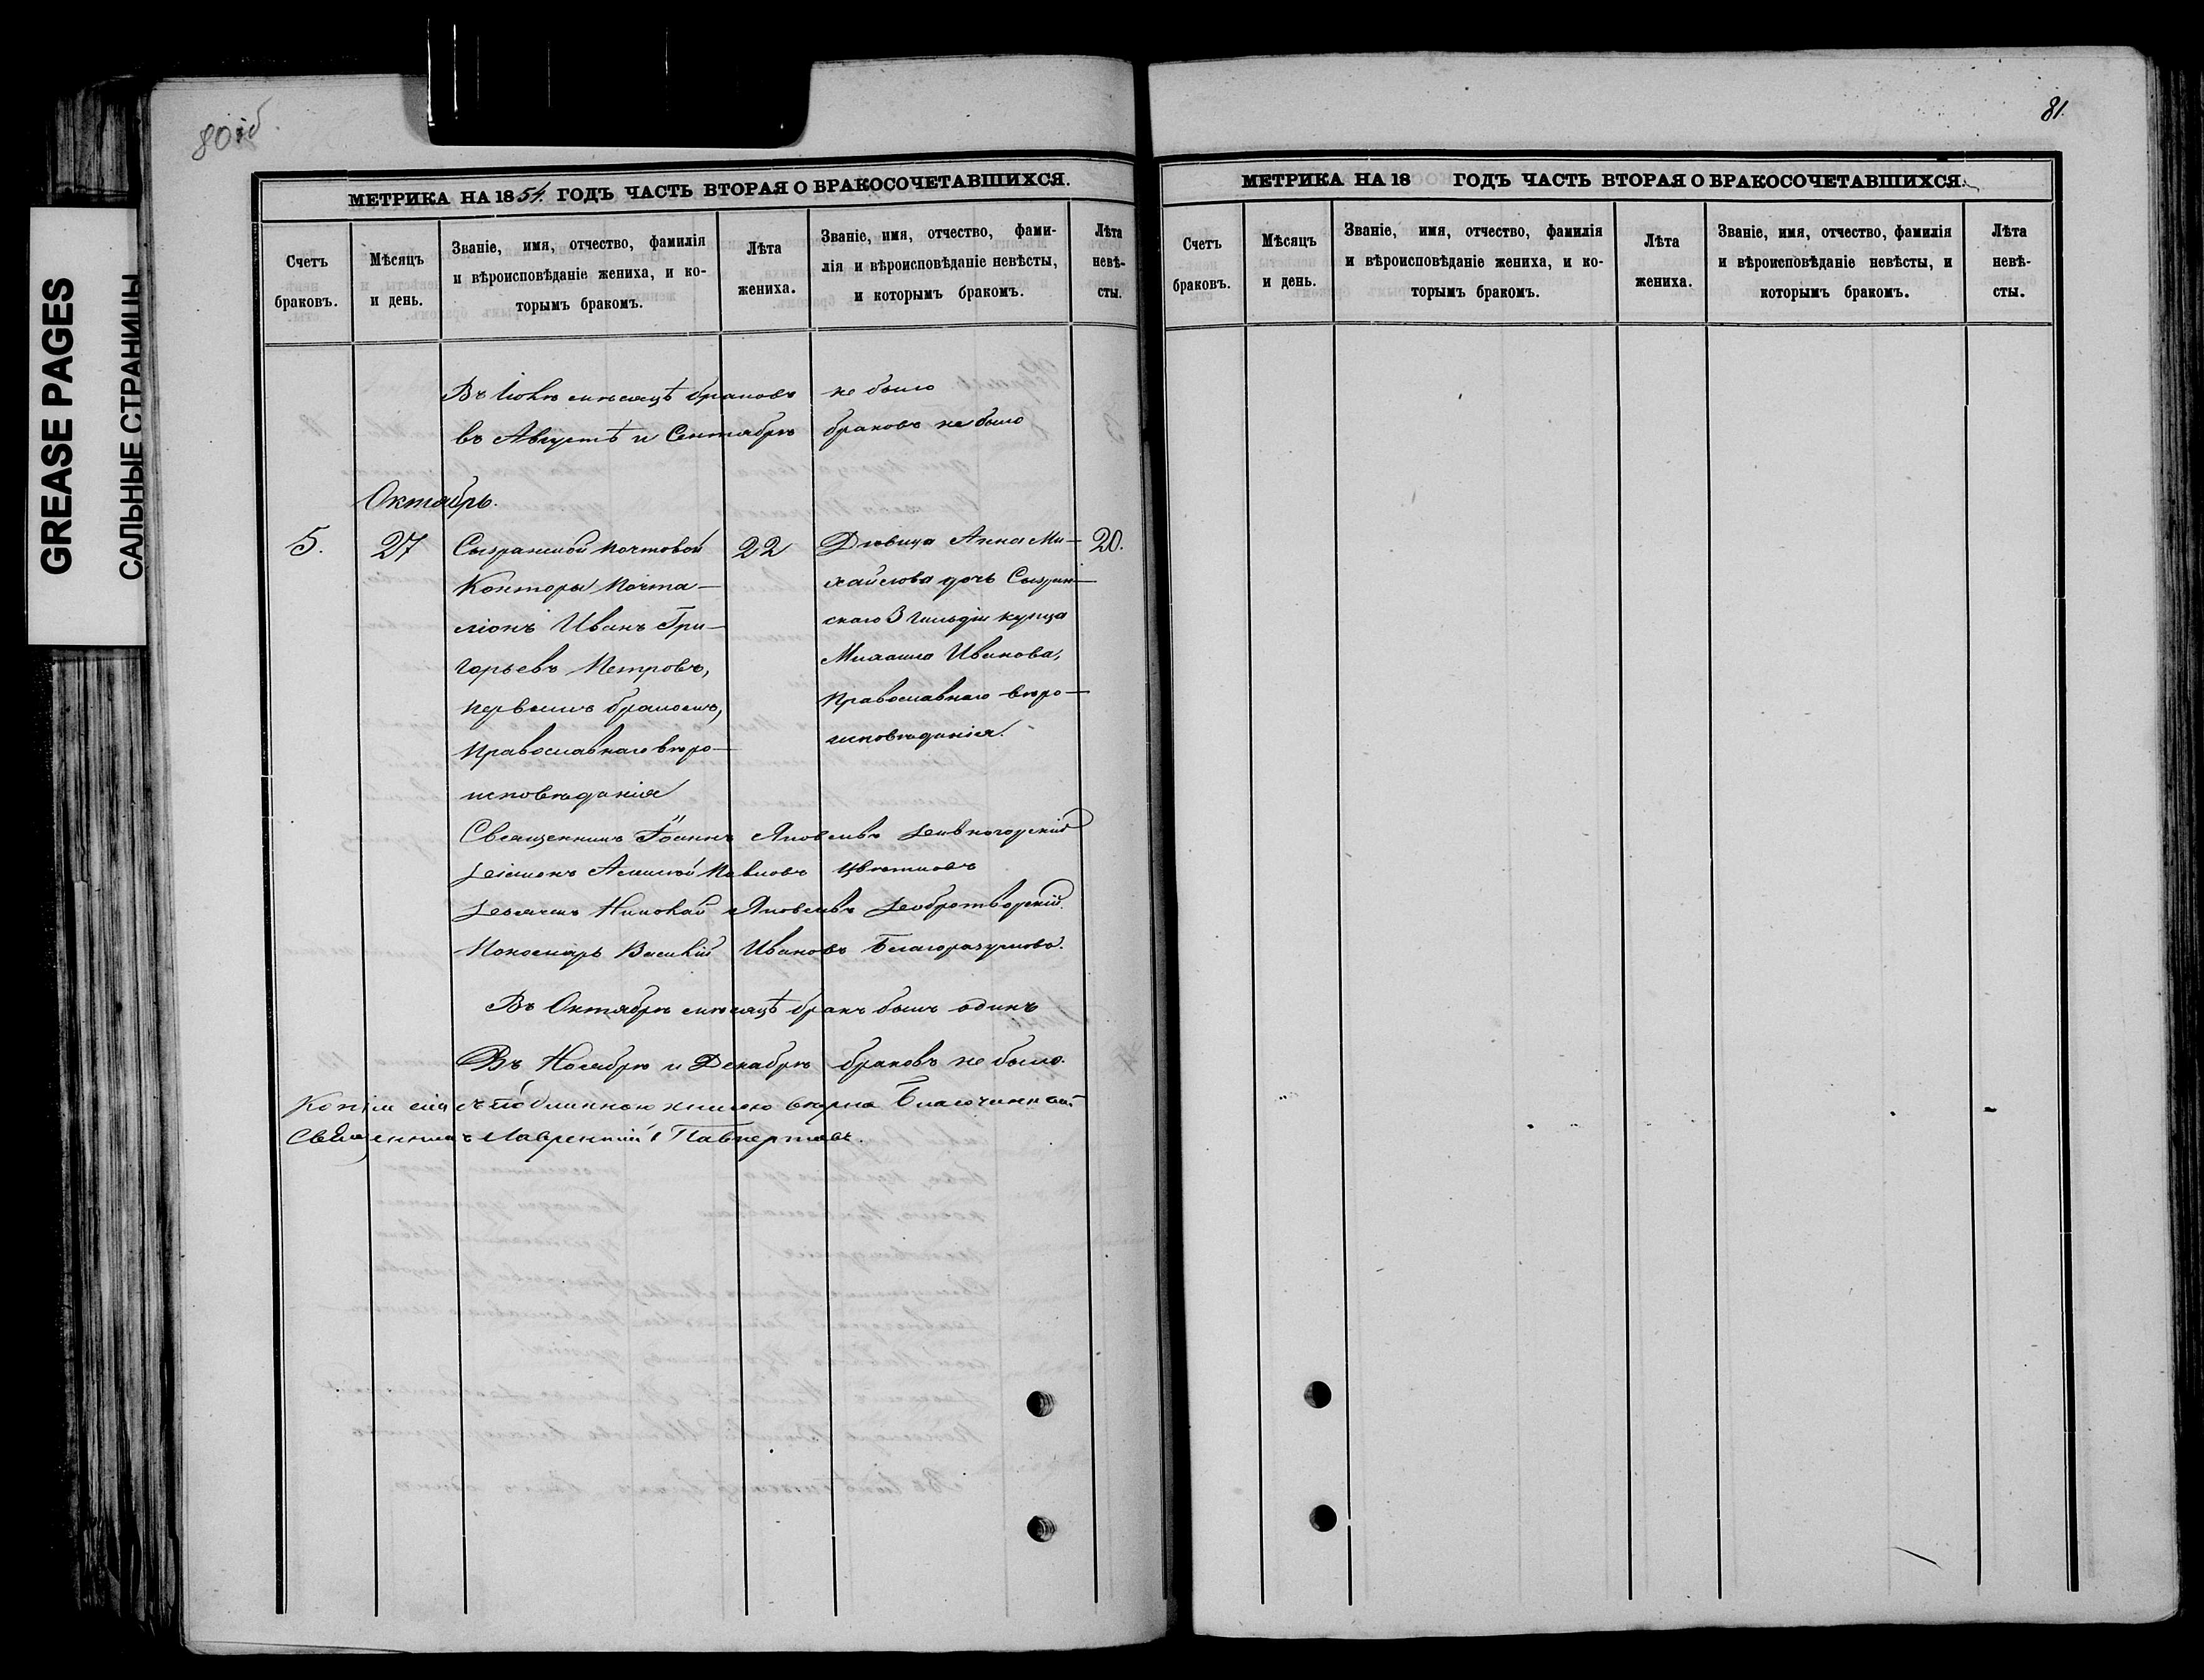 GREASE PAGES
САЛЬНЫЕ СТРАНИЦЫ
80 об.
МЕТРИКА НА 1854. ГОДЪ ЧАСТЬ ВТОРАЯ О БРАКОСОЧЕТАВШИХСЯ.
Счетъ браковъ.
Мѣсяцъ и день.
Званіе, имя, отчество, фамилія
и вѣроисповѣданіе жениха, и ко-
торымъ бракомъ.
Лѣта жениха.
Званіе, имя, отчество, фами-
лія и вѣроисповѣданіе невѣсты,
и которымъ бракомъ.
Лѣта невѣ-
сты.
Въ Іюлѣ мѣсяцѣ браковъ не было
въ Августѣ и Сентябрѣ браковъ не было
Октябрь.
5. 27
Сызранской почтовой
Конторы почта-
ліонъ Иванъ Гри-
горьевъ Петровъ,
первымъ бракомъ,
православнаго вѣро-
исповѣданія
22
Дѣвица Анна Ми-
хайлова дочь Сызран-
скаго 3 гильдіи купца
Михаила Иванова,
православнаго вѣро-
исповѣданія.
20.
Священникъ Іоаннъ Яковлевъ Дивногорскій
Діаконъ Алексѣй Павловъ Цвѣтковъ
Дьячекъ Николай Яковлевъ Добротворскій.
Пономарь Василій Ивановъ Благоразумовъ.
Въ Октябрѣ мѣсяцѣ бракъ былъ одинъ
Въ Ноябрѣ и Декабрѣ браковъ не было.
Копія сія съ подлинною книгою вѣрна Благочинный
Священникъ Лаврентій
81.
МЕТРИКА НА 18 ГОДЪ ЧАСТЬ ВТОРАЯ О БРАКОСОЧЕТАВШИХСЯ.
Счетъ браковъ.
Мѣсяцъ и день.
Званіе, имя, отчество, фамилія
и вѣроисповѣданіе жениха, и ко-
торымъ бракомъ.
Лѣта жениха.
Званіе, имя, отчество, фамилія
и вѣроисповѣданіе невѣсты, и
которымъ бракомъ.
Лѣта невѣ-
сты.